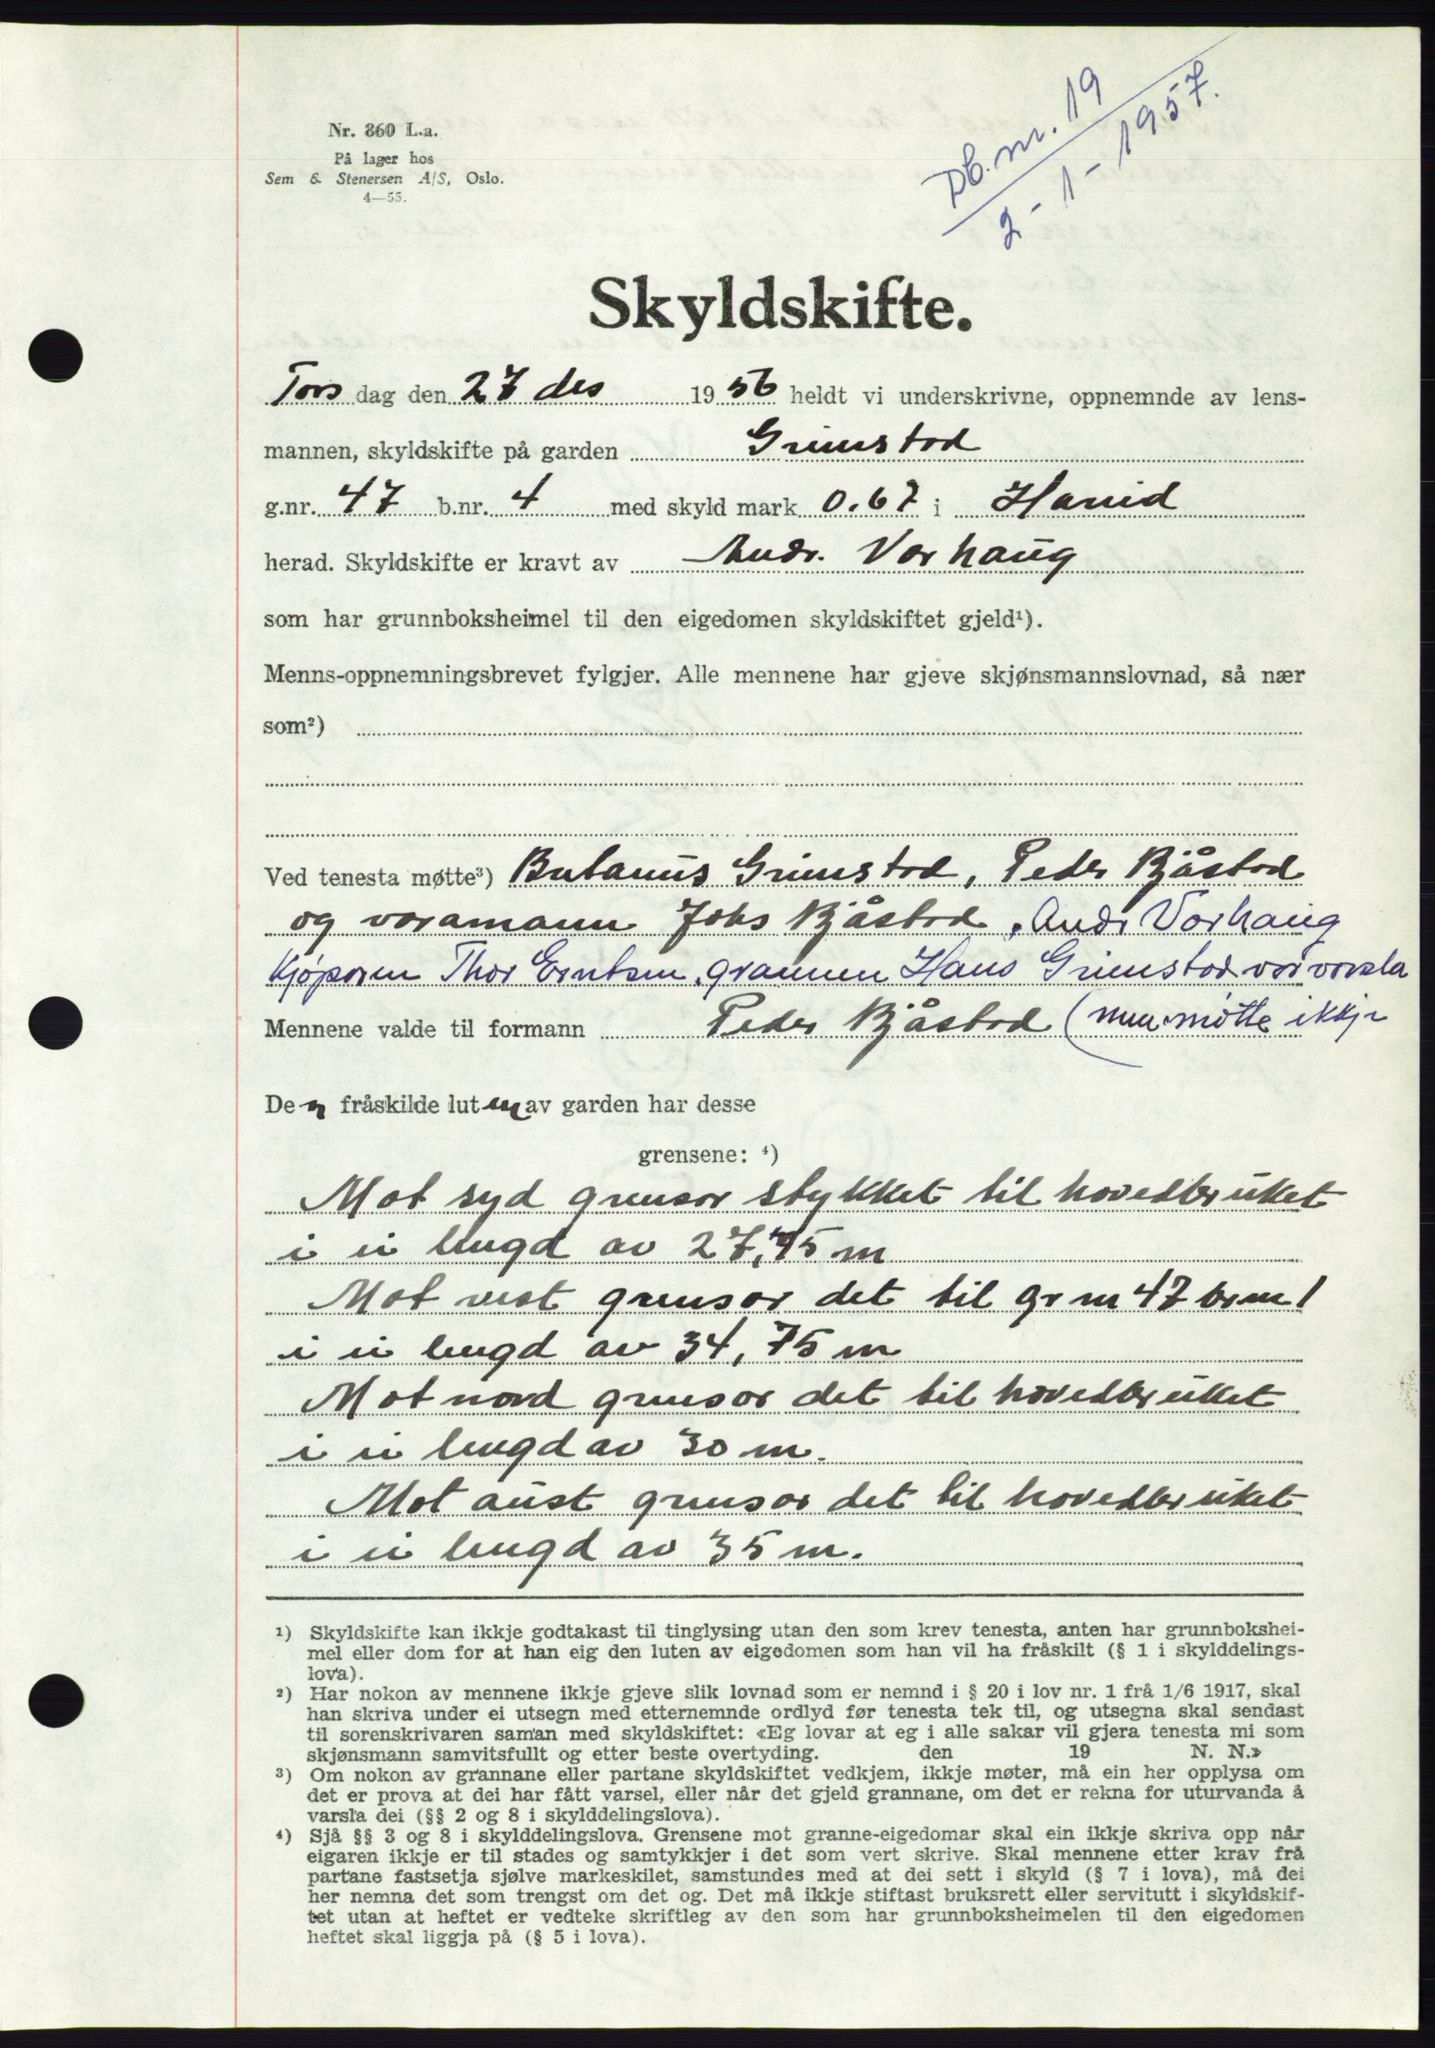 Nr. 360 L.a.
På lager hos
Sem & Stenersen A/S, Oslo.
4—55.
Db. nr. 19
2-1-1957.
Skyldskifte.
Tors dag den 27 des 1956 heldt vi underskrivne, oppnemnde av lens-
mannen, skyldskifte på garden Grimstad
g.nr. 47 b.nr. 4 med skyld mark 0.67 i Hareid
herad. Skyldskifte er kravt av Andr. Varhaug
som har grunnboksheimel til den eigedomen skyldskiftet gjeld¹).
Menns-oppnemningsbrevet fylgjer. Alle mennene har gjeve skjønsmannslovnad, så nær
som²)
Ved tenesta møtte³) Grimstad, Peder Bjåstad
og varamann Johs Bjåstad, Andr Varhaug
Kjøparen Thor Erntsen, grannen Hans Grimstad var varsla
Mennene valde til formann Peder Bjåstad (men møtte ikkje
Den fråskilde luten av garden har desse
grensene: ⁴)
Mot syd grensar stykket til hovedbruket
i ei lengd av 27,75 m
Mot vest grensar det til gr nr 47 br nr 1
i ei lengd av 34,75 m
Mot nord grensar det til hovedbruket
i ei lengd av 30 m.
Mot aust grensar det til hovedbruket
i ei lengd av 35 m.
¹) Skyldskifte kan ikkje godtakast til tinglysing utan den som krev tenesta, anten har grunnbokshei-
mel eller dom for at han eig den luten av eigedomen som han vil ha fråskilt (§ 1 i skylddelings-
lova).
²) Har nokon av mennene ikkje gjeve slik lovnad som er nemnd i § 20 i lov nr. 1 frå 1/6 1917, skal
han skriva under ei utsegn med etternemnde ordlyd før tenesta tek til, og utsegna skal sendast
til sorenskrivaren saman med skyldskiftet: «Eg lovar at eg i alle sakar vil gjera tenesta mi som
skjønsmann samvitsfullt og etter beste overtyding. den 19 N. N.»
³) Om nokon av grannane eller partane skyldskiftet vedkjem, ikkje møter, må ein her opplysa om
det er prova at dei har fått varsel, eller når det gjeld grannane, om det er rekna for uturvanda å
varsla dei (§§ 2 og 8 i skylddelingslova).
⁴) Sjå §§ 3 og 8 i skylddelingslova. Grensene mot granne-eigedomar skal ein ikkje skriva opp når
eigaren ikkje er til stades og samtykkjer i det som vert skrive. Skal mennene etter krav frå
partane fastsetja sjølve markeskilet, samstundes med at dei sett i skyld (§ 7 i lova), må dei
her nemna det som trengst om det og. Det må ikkje stiftast bruksrett eller servitutt i skyldskif-
tet utan at heftet er vedteke skriftleg av den som har grunnboksheimelen til den eigedomen
heftet skal liggja på (§ 5 i lova).